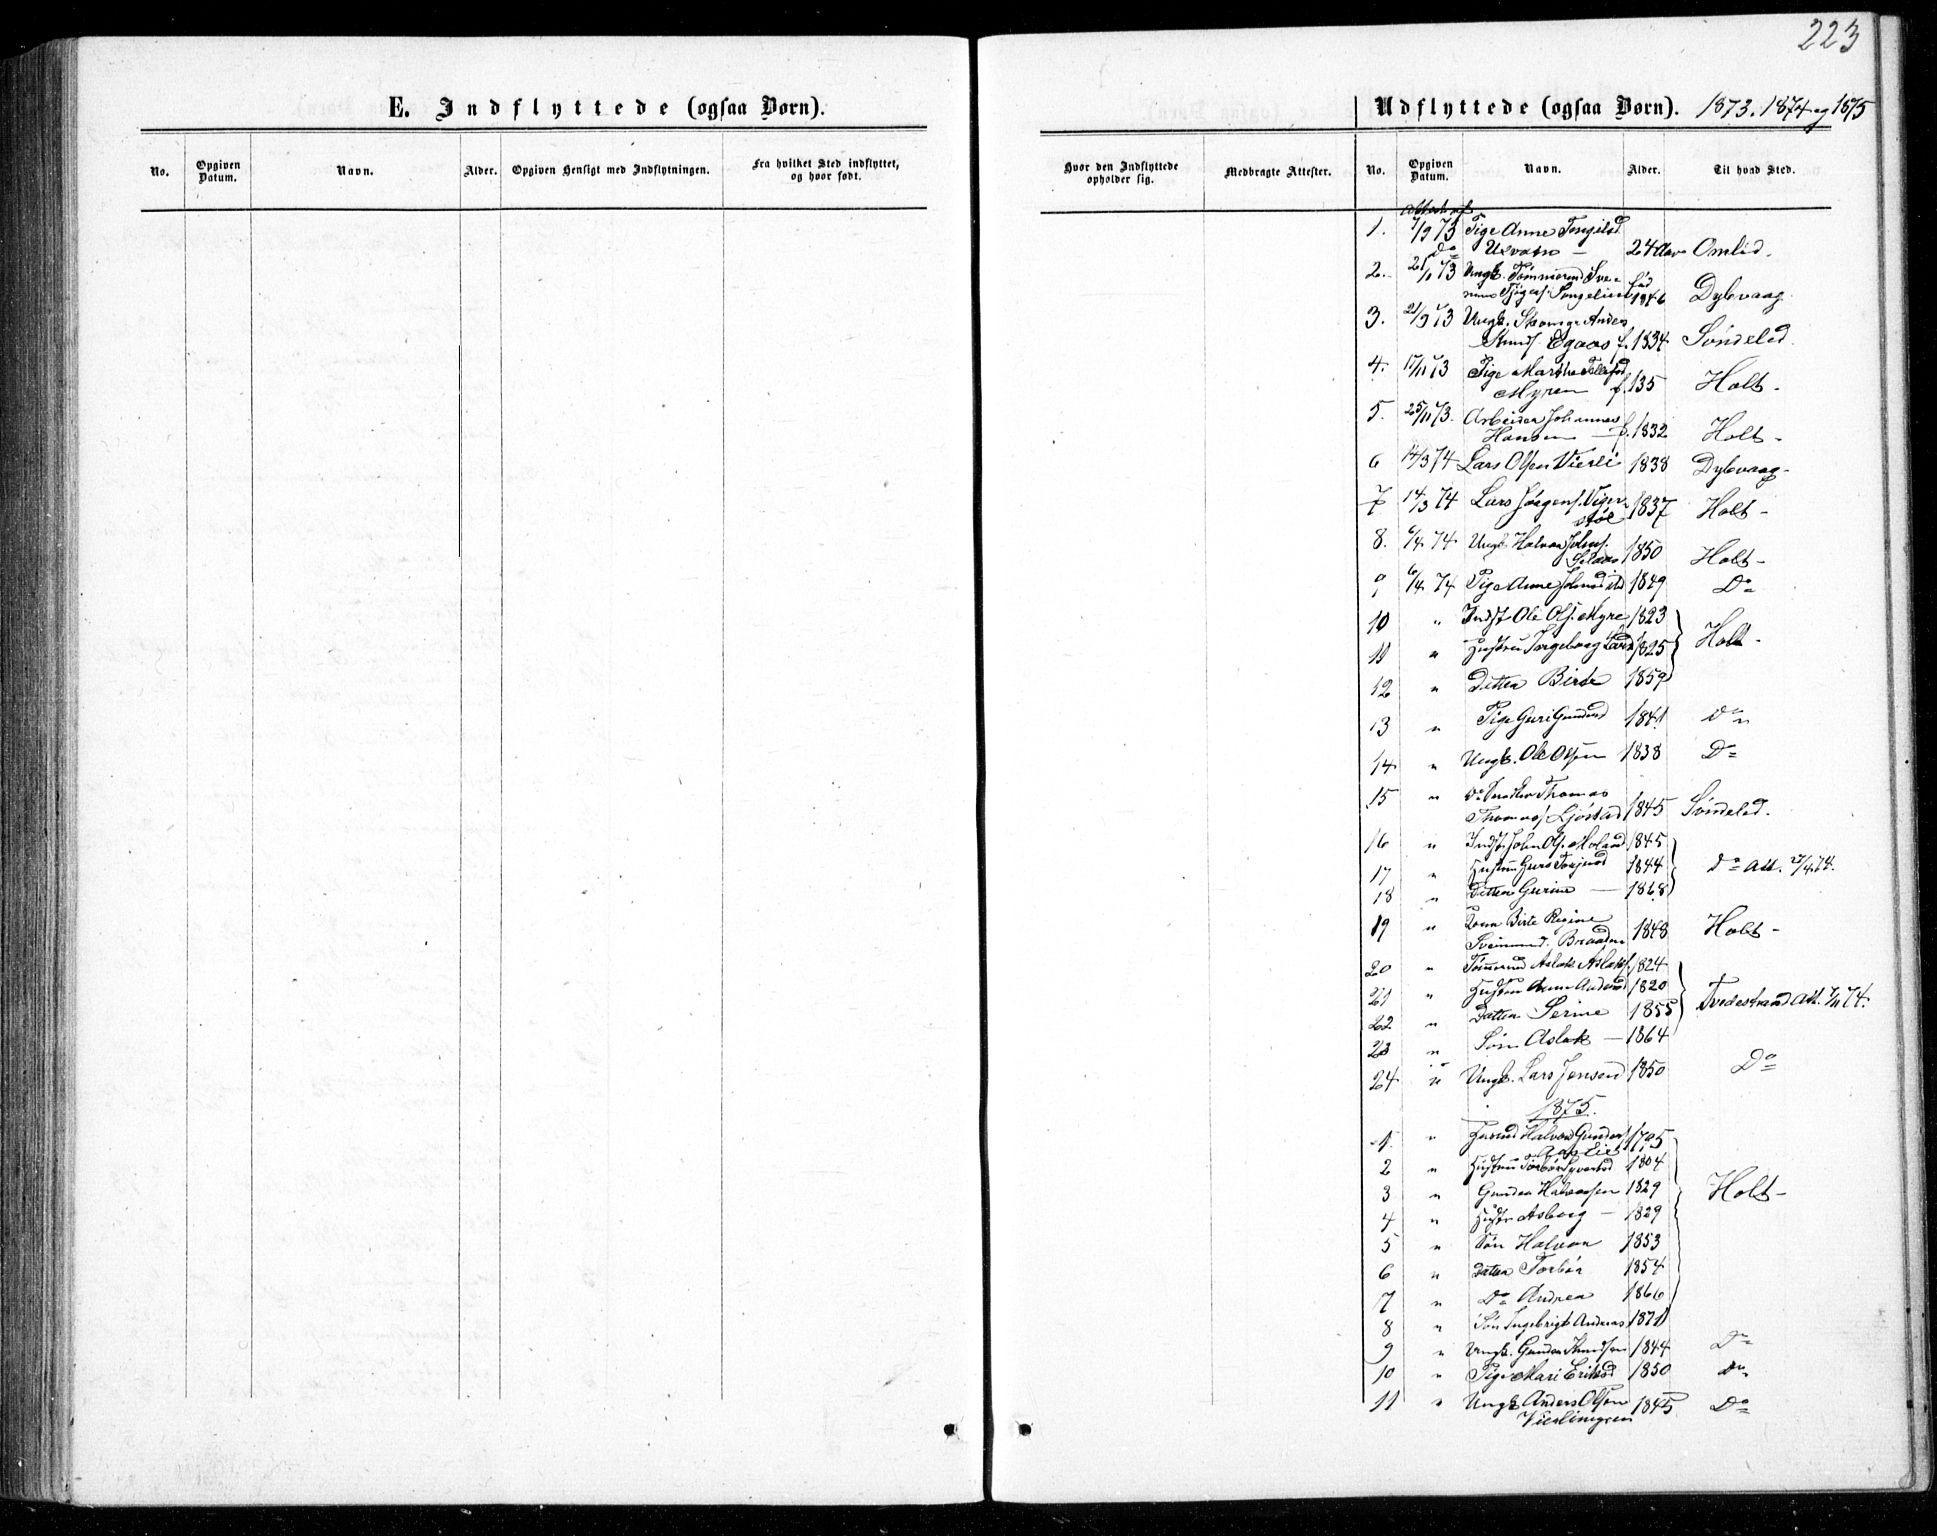 223
E. Indflyttede (ogsaa Børn).
No. Opgiven Datum. Navn. Alder. Opgiven Hensigt med Indflytningen. Fra hvilket Sted indflyttet, og hvor født.
Udflyttede (ogsaa Børn). 1873. 1874 og 1875
Hvor den Indflyttede opholder sig. Medbragte Attester. No. Opgiven Datum. Navn. Alder. Til hvad Sted.
1. 7/9 73 Pige Anne
Do 24 Aar Omlid.
2. 73 Ungk. Tømmermd
født 1846 Dybvaag
3. 21/9 73 Ungk. Anders
Knuds. Egaas f. 1834 Søndeled.
4. 17/11 73 Pige Marthe
Myren f. 135 Holt -
5. 25/11 73. Arbeider Johannes
Hansen - f. 1832 Holt -
6 14/3 74 Lars Olsen Vierli 1838 Dybvaag -
7 14/3 74 Lars Jørgens. 1837 Holt -
8. 6/4 74 Ungk Halvor 1850 Holt -
9 6/4 74 Pige Anne 1849 Do
10 " Indst Ole Ols. Myre 1823
11 " Hustru Ingeborg 1825 Holt -
12 " Datter Birte 1859
13 " Pige Guri 1841 Do
14 " Ungk. Ole Olsen 1838 Do
15 " Do Thomas
Thomas. Ljøstad 1845 Søndeled.
16 " Indst. John Ols. Moland 1845
17 " Hustru 1844 Do Att. 27/4 74.
18 " Datter Gurine - 1868
19 " Birte Regine
1848 Holt -
20 " Aslak Aslaks. 1824
21 " Hustru Anne 1820
22 " Datter Serine 1855 Tvedestrand Att. 7/11 74.
23 " Søn Aslak - 1864
24 " Ungk. Lars Jensen 1850 Do
1875.
1. " Halvor Gunders. 1795
2 " Hustru 1804
3 " Gunder Halvorsen 1829 Holt -
4 " Hustr Asborg - 1829
5 " Søn Halvor 1853
6 " Datter Torbør 1854
7 " Do Andrea 1866
8 " Søn Ingebrigt Andreas 1871
9 " Ungk. Gunder Knudsen 1844 Do
10 " Pige Mari 1850 Do
11 " Ungk Anders Olsen 1845 Do
Vierlimyren